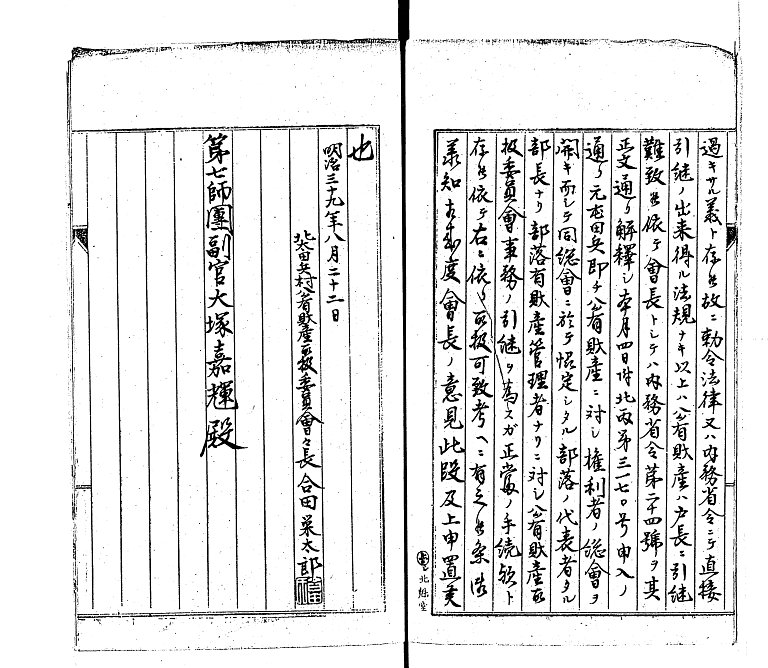 過キサル義ト存候故ニ勅令法律又ハ内務省令ニテ直接
引継ノ出来得ル法規ナキ以上ハ公有財産ハ戸長ニ引継
難致候依テ會長トシテハ内務省令第二十四號ヲ其
正文通リ解釋シ本月四日附北丙第三一七〇号申入ノ
通リ元屯田兵即チ公有財産ニ対シ権利者ノ総會ヲ
開キ而シテ同総會ニ於テ恊定シタル部落ノ代表者タル
部長ナリ部落有財産管理者ナリニ対シ公有財産取
扱委員會事務ノ引継ヲ為スガ正當ノ手続欤ト
存候依テ右ニ依リ取扱可致考ヘニ有之候条御
承知相成度會長ノ意見此段及上申置候
也
明治三十九年八月二十二日
北太田兵村公有財産取扱委員會々長 合田栄太郎
第七師團副官大塚嘉輝殿